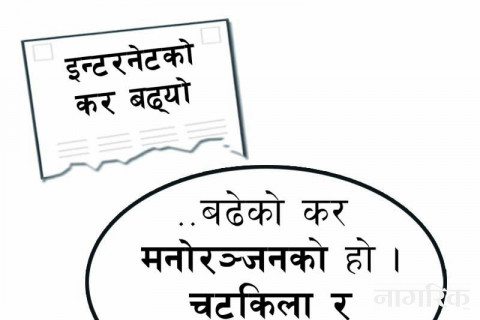 इन्टरनेटको
कर बढ्यो
..बढेको कर
मनोरञ्जनको हो ।
चुटकिला र
नागरिक